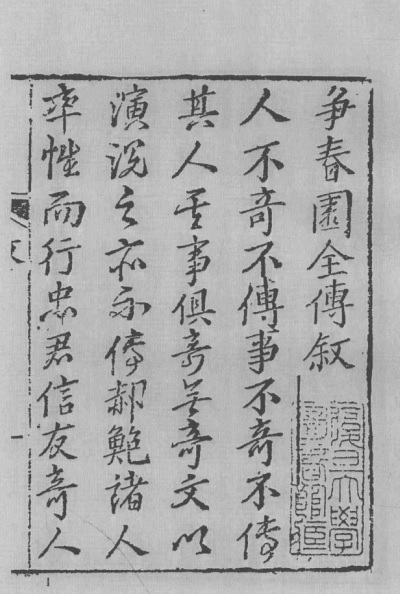 爭春園全傳叙
復旦大學
圖書館
人不奇不傳事不奇不傳
其人其事俱奇無奇文以
演説之亦不傳郝鮑諸人
率性而行忠君信友奇人